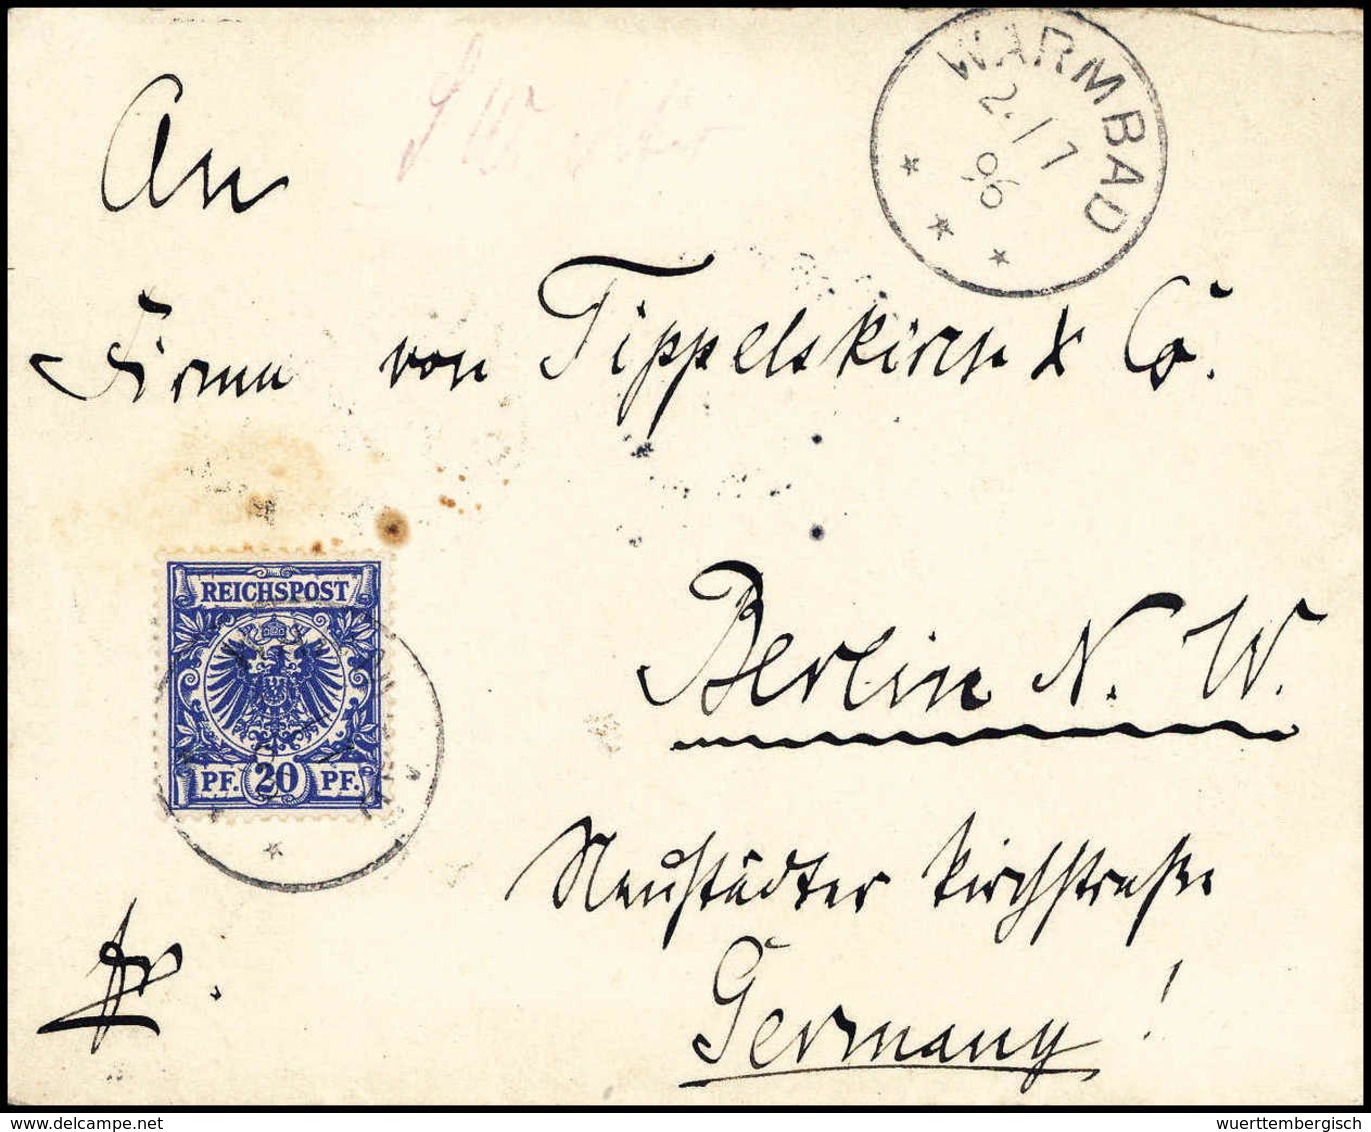 WARMBAD
2./7
96
An
Firma von Tippelskirch & Co.
REICHSPOST
PF. 20 PF.
Berlin N. W.
Neustädter Kirchstraße
Germany!
fr.
www.delcampe.net
wuerttembergisch